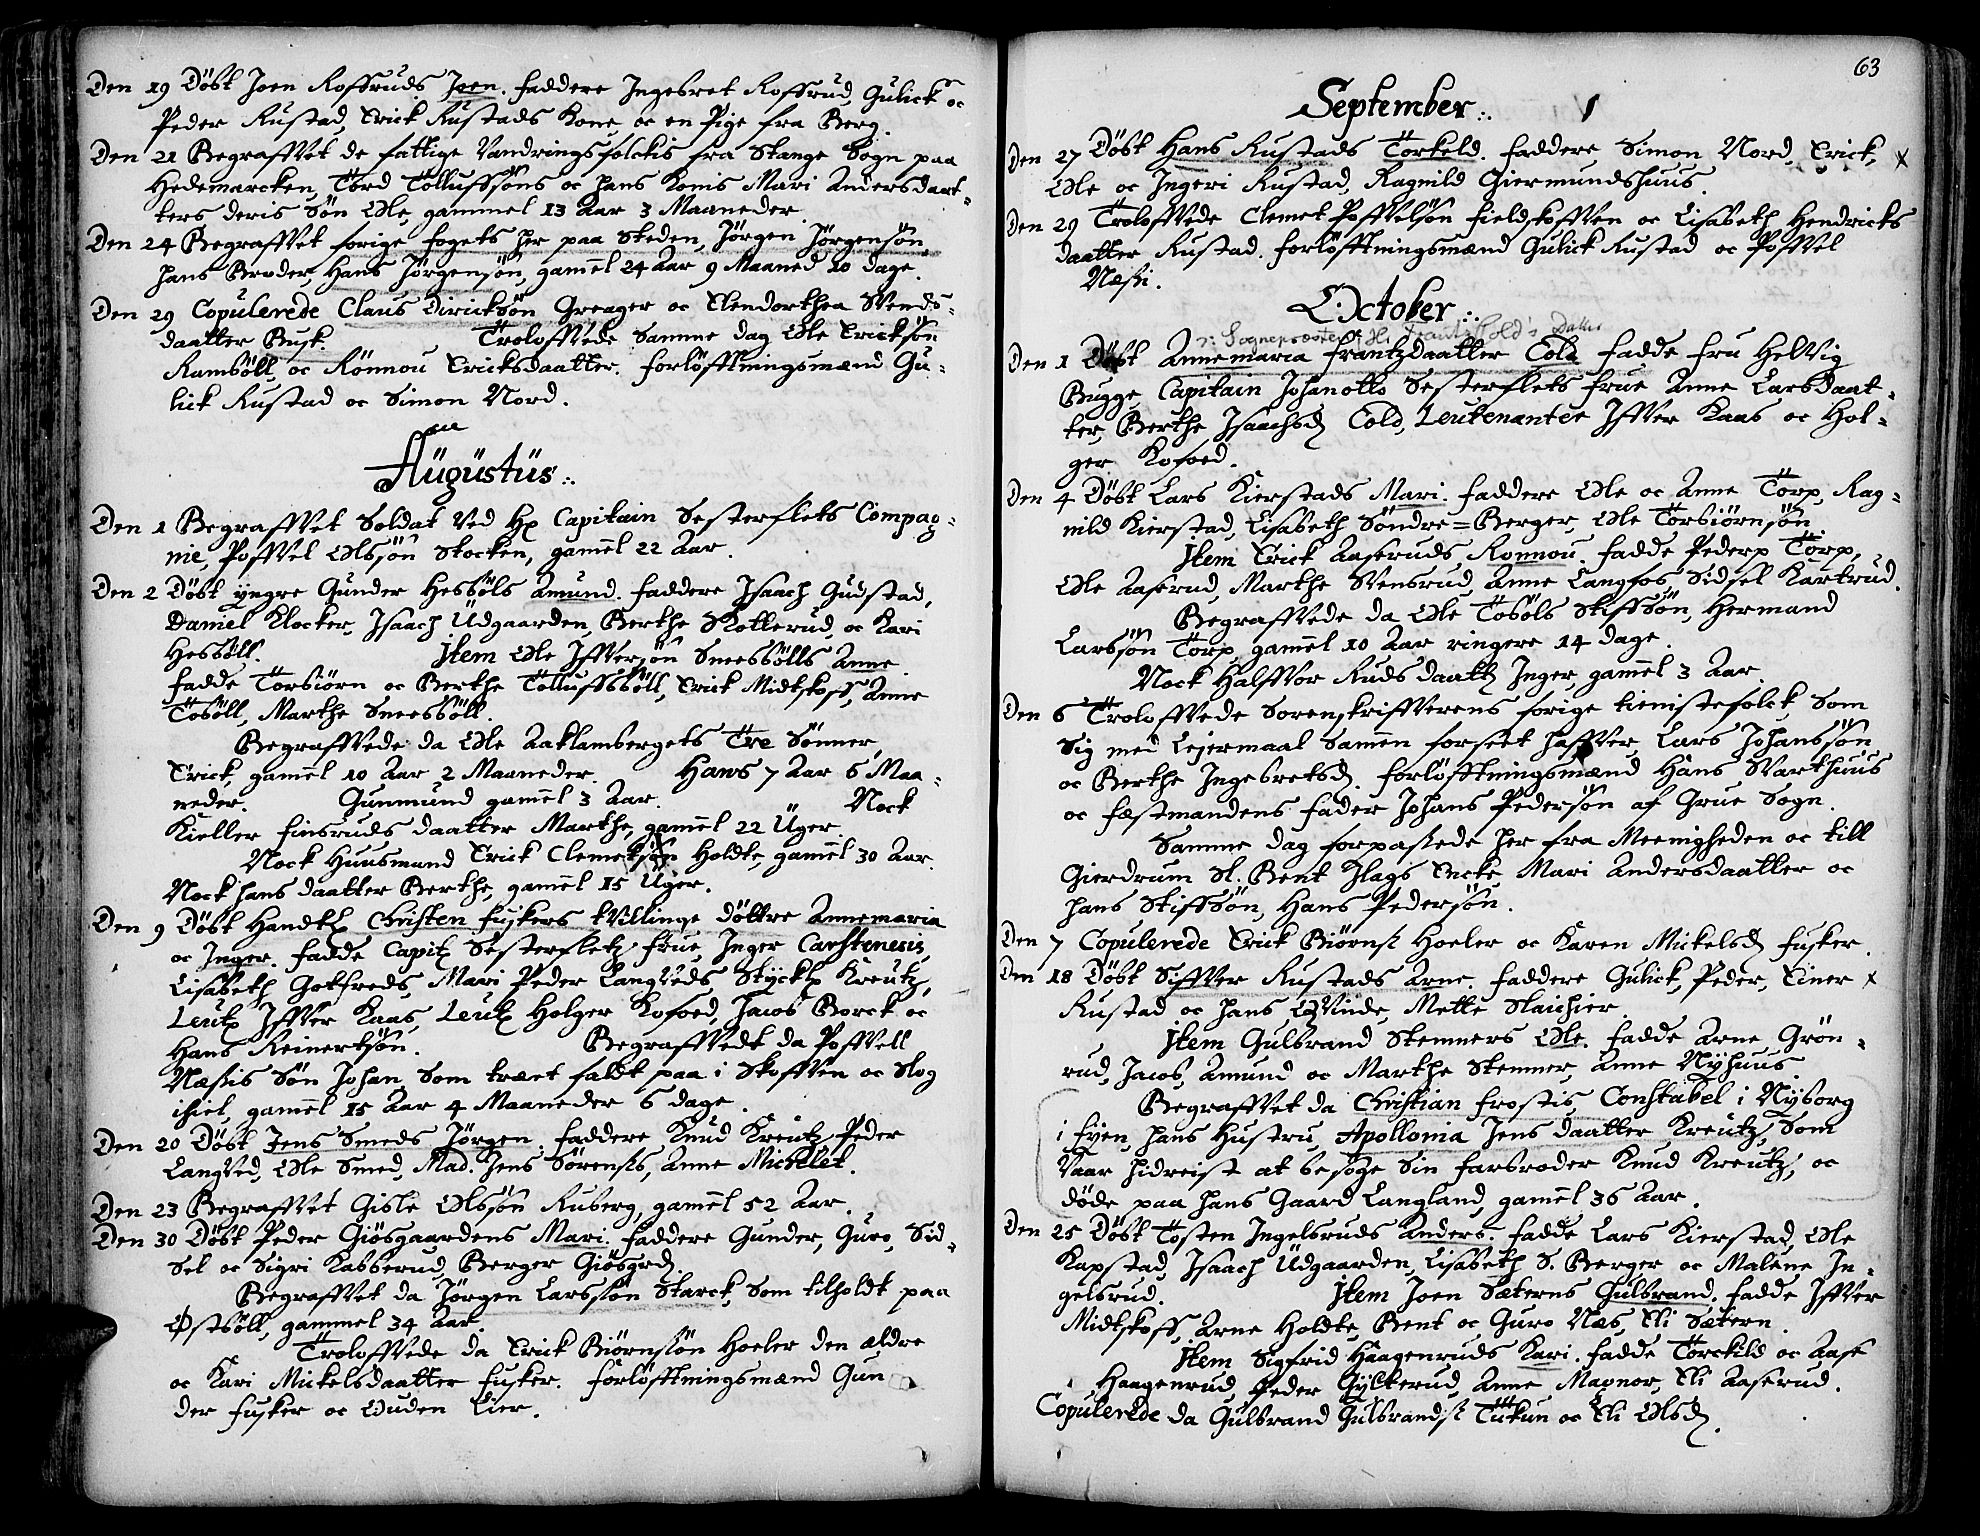 Den 19 Döbt Joen Roffruds Joen. faddere Ingebret Roffrud, Gulick oc
Peder Rustad, Erick Rustads Kone oc en Pige fra Berg.
Den 21 Begraffvet de fattige Vandringsfolckis fra Stange Sogn paa
Hedemarcken, Tord Tolluffsöns oc hans Konis Mari Andersdaat-
ters deris Sön Ole, gammel 13 Aar 3 Maaneder.
Den 24 Begraffvet forige fogets her paa Steden, Jörgen Jörgensön,
hans Broder, Hans Jörgensön, gamel 24 Aar 9 Maaned 10 dage.
Den 29 Copulerede Claus Diricksön Greager oc Elendorthea Svends-
daatter Busk. Troloffvede Samme dag Ole Ericksön
Ramsöll, oc Rönnou Ericksdaatter. forlöfftningsmænd Gu-
lick Rustad oc Simon Nord.
Augustus.
Den 1 Begraffvet Soldat ved Hr Capitain Sesterflets Compag-
nie, Poffvel Olssön Skocken, gamel 22 Aar.
Den 2 Döbt yngre Gunder Hesböls Amund. faddere Isaach Gudstad,
Daniel Klocker, Isaach Udgaarden, Berthe Skotterud, oc Kari
Hesböll. Item Ole Iffversön Sneesbölls Anne
fadde Torbiörn oc Berthe Tolluffsböll, Erick Midtskoff, Anne
Tosöll, Marthe Sneesböll.
Begraffvede da Ole Aaklambergets Tre Sönner,
Erick, gamel 10 Aar 2 Maaneder. Hans 7 Aar 6 Maa-
neder. Gunmund gamel 3 Aar. Nock
Kieller Finsruds daatter Marthe, gamel 22 Uger.
Nock Huusmand Erick Clemetsön Holdte, gamel 30 Aar.
Nock hans daatter Berthe, gamel 15 Uger.
Den 9 Döbt Handtz Christen Fuskers tvillinge döttre Annemaria
oc Inger. fadde Capit Sesterfletz frue Inger Carstenesis,
Lisabeth Gotfreds, Mari Peder Langveds, Stÿckl Kreutz,
Leut Iffver Kaas, Leut Holger Kofoed, Jacob Borck oc
Hans Reinertsön. Begraffvedt da Poffvell
Næssis Sön Johan, Som træet faldt paa i Skoffven oc Slog
ihiel, gamel 15 Aar 4 Maaneder 6 dage.
Den 20 Döbt Jens Smeds Jörgen. faddere Knud Kreutz, Peder
Langved, Ole Smed, Mad. Jens Sörensis, Anne Mickelet.
Den 23 Begraffvet Gisle Olssön Ruberg, gamel 52 Aar.
Den 30 Döbt Peder Giösgaardens Mari. faddere Gunder, Guro, Sid-
sel oc Sigri Kabberud, Berger Giösgrd.
Begraffvet da Jörgen Larssön Starck, Som tilholdt paa
Østböll, gammel 34 Aar.
Troloffvede da Erick Biörnsön Hoeler den ældre
oc Kari Mickelsdaatter Fusker. forlöfftningsmænd Gun
der Fusker oc Ouden Lier.
63
September.
Den 27 Döbt Hans Rustads Torkeld. faddere Simon Nord, Erick,
Ole oc Ingeri Rustad, Ragnild Giermundshuus.
Den 29 Troloffvede Clemet Poffvelsön Fieldskoffven oc Lisabeth Hendricks
daatter Rustad. forlöfftningsmænd Gulick Rustad oc Poffvel
Næssi.
October.
ɔ: Sognepræsten Hr Frantz Told's Datter
Den 1 Döbt Annemaria Frantzdaatter Cold fadde fru Helvig
Bugge, Capitain Johanotto Sesterflets frue Anne Larsdaat-
ter, Berthe Isaachsd Cold, Leutenanter Iffver Kaas oc Hol-
ger Kofoed.
Den 4 Döbt Lars Kierstads Mari. faddere Ole oc Anne Torp, Rag-
nild Kierstad, Lisabeth Söndre=Berger, Ole Torbiörnsön.
Item Erick Aaseruds Ronnou. fadde Peder Torp,
Ole Aaserud, Marthe Svensrud, Anne Langfos, Sidsel Kartrud.
Begraffvede da Ole Tosöls Stiffsön, Hermand
Larssön Torp, gamel 10 Aar ringere 14 dage.
Nock Halffvor Ruds daatt Inger, gamel 3 Aar.
Den 6 Troloffvede Sorenskriffverens forige tienistefolck, Som
Sig med Lejermaal Samen forseet haffver, Lars Johanssön
oc Berthe Ingebretsd. forlöfftningsmænd Hans Svarthuus
oc fæstmandens fader Johans Pedersön af Grue Sogn.
Samme dag forpassede her fra Meenigheden oc till
Gierdrum Sl. Bent Flags Encke Mari Andersdaatter oc
hans Stiffsön, Hans Pedersön.
Den 7 Copulerede Erick Biörns Hoeler oc Karen Mickelsd Fusker.
Den 18 Döbt Siffver Rustads Arne. faddere Gulick, Peder, Einer
Rustad oc hans Qvinde, Mette Slaichier.
Item Gulbrand Stemners Ole. fadde Arne Grön-
rud, Jacob, Amund oc Marthe Stemner, Anne Nÿhuus.
Begraffvet da Christian Frostis, Constabel i Nÿborg
i Fÿen, hans Hustru, Apollonia Jens daatter Kreutz, Som
Vaar hidreist at besöge Sin Farbroder Knud Kreutz, oc
döde paa hans Gaard Langland, gamel 36 Aar.
Den 25 Döbt Tosten Ingelsruds Anders. fadde Lars Kierstad, Ole
Kapstad, Isaach Udgaarden, Lisabeth S. Berger oc Malene In-
gelsrud. Item Joen Sæterns Gulbrand. fadde Iffver
Midtskoff, Arne Holdte, Bent oc Guro Næs, Eli Sætern.
Item Sigfrid Haagenruds Kari. fadde Torckild oc Aase
Haagenrud, Peder Gÿlterud, Anne Maynor, Eli Aaserud.
Copulerede da Gulbrand Gulbrands Tukun oc Eli Olsd.